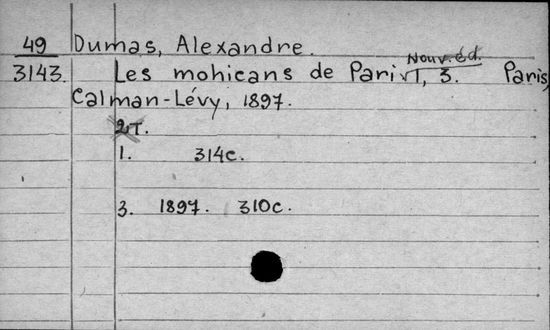 49 Dumas, Alexandre.
Nouv. éd.
3143. Les mohicans de Paris 1, 3. Paris,
Calman-Lévy, 1897.
2т.
1. 314с.
3. 1897. 310с.